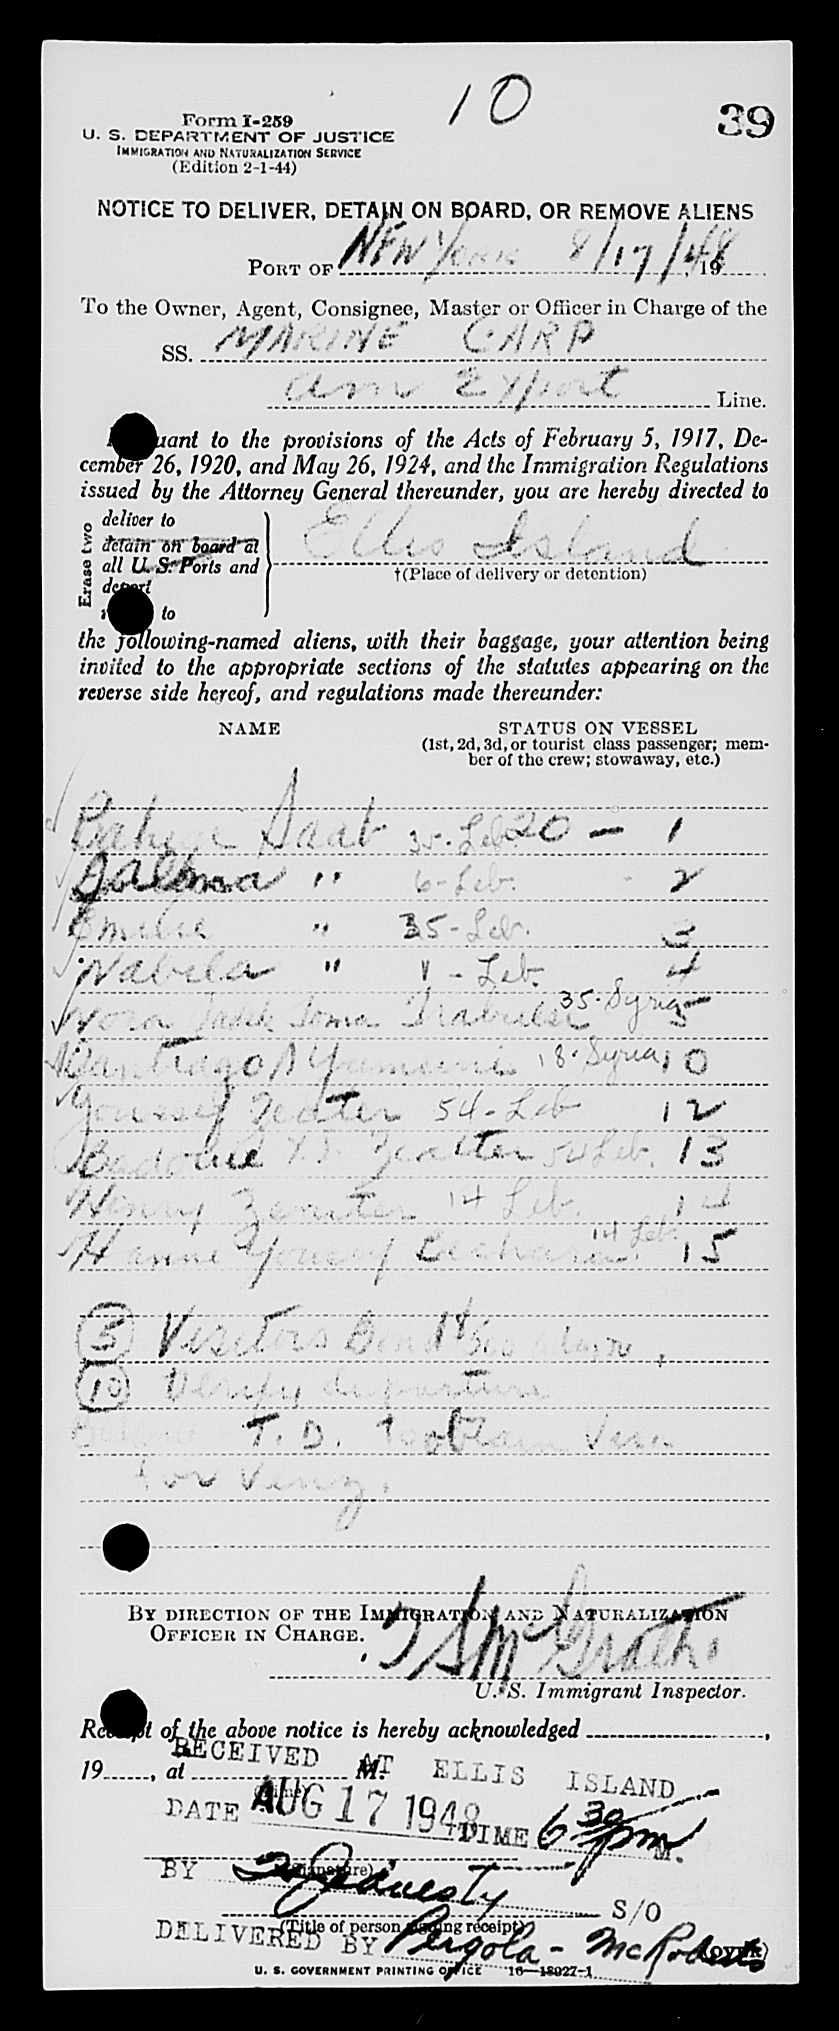 10
39
Form I-259
U. S. DEPARTMENT OF JUSTICE
IMMIGRATION AND NATURALIZATION SERVICE
(Edition 2-1-44)
NOTICE TO DELIVER, DETAIN ON BOARD, OR REMOVE ALIENS
PORT OF New York 8/17/48, 19
To the Owner, Agent, Consignee, Master or Officer in Charge of the
SS. MARINE CARP
Am Export Line.
uant to the provisions of the Acts of February 5, 1917, De-
cember 26, 1920, and May 26, 1924, and the Immigration Regulations
issued by the Attorney General thereunder, you are hereby directed to
Erase two
deliver to
detain on board at
all U. S. Ports and
deport
to
Ellis Island
†(Place of delivery or detention)
the following-named aliens, with their baggage, your attention being
invited to the appropriate sections of the statutes appearing on the
reverse side hereof, and regulations made thereunder:
NAME
STATUS ON VESSEL
(1st, 2d, 3d, or tourist class passenger; mem-
ber of the crew; stowaway, etc.)
Saab 35-Leb. 20 - 1
Salma " 6-Leb. - 2
Emilie " 35-Leb. 3
Nabila " - Leb. 4
Nora Toma 35-Syria 5
Santiago 18-Syria 10
Youssef Zeaiter 54-Leb 12
Zeaiter 54 Leb. 13
Henry Zeaiter 14 Leb. 14
Hanne 14 Leb. 15
(5) Visitors Bond $500
(10) Verify departure
T. D. To obtain Visa
for Venz.
BY DIRECTION OF THE IMMIGRATION AND NATURALIZATION
OFFICER IN CHARGE.
McGrath
U. S. Immigrant Inspector.
Receipt of the above notice is hereby acknowledged ,
19, at M.
RECEIVED AT ELLIS ISLAND
DATE AUG 17 1948 TIME 6 30 pm M.
(Signature)
BY
S/O
(Title of person signing receipt)
DELIVERED BY Pergola - McRoberts
(OVER)
U. S. GOVERNMENT PRINTING OFFICE 16—18027-1